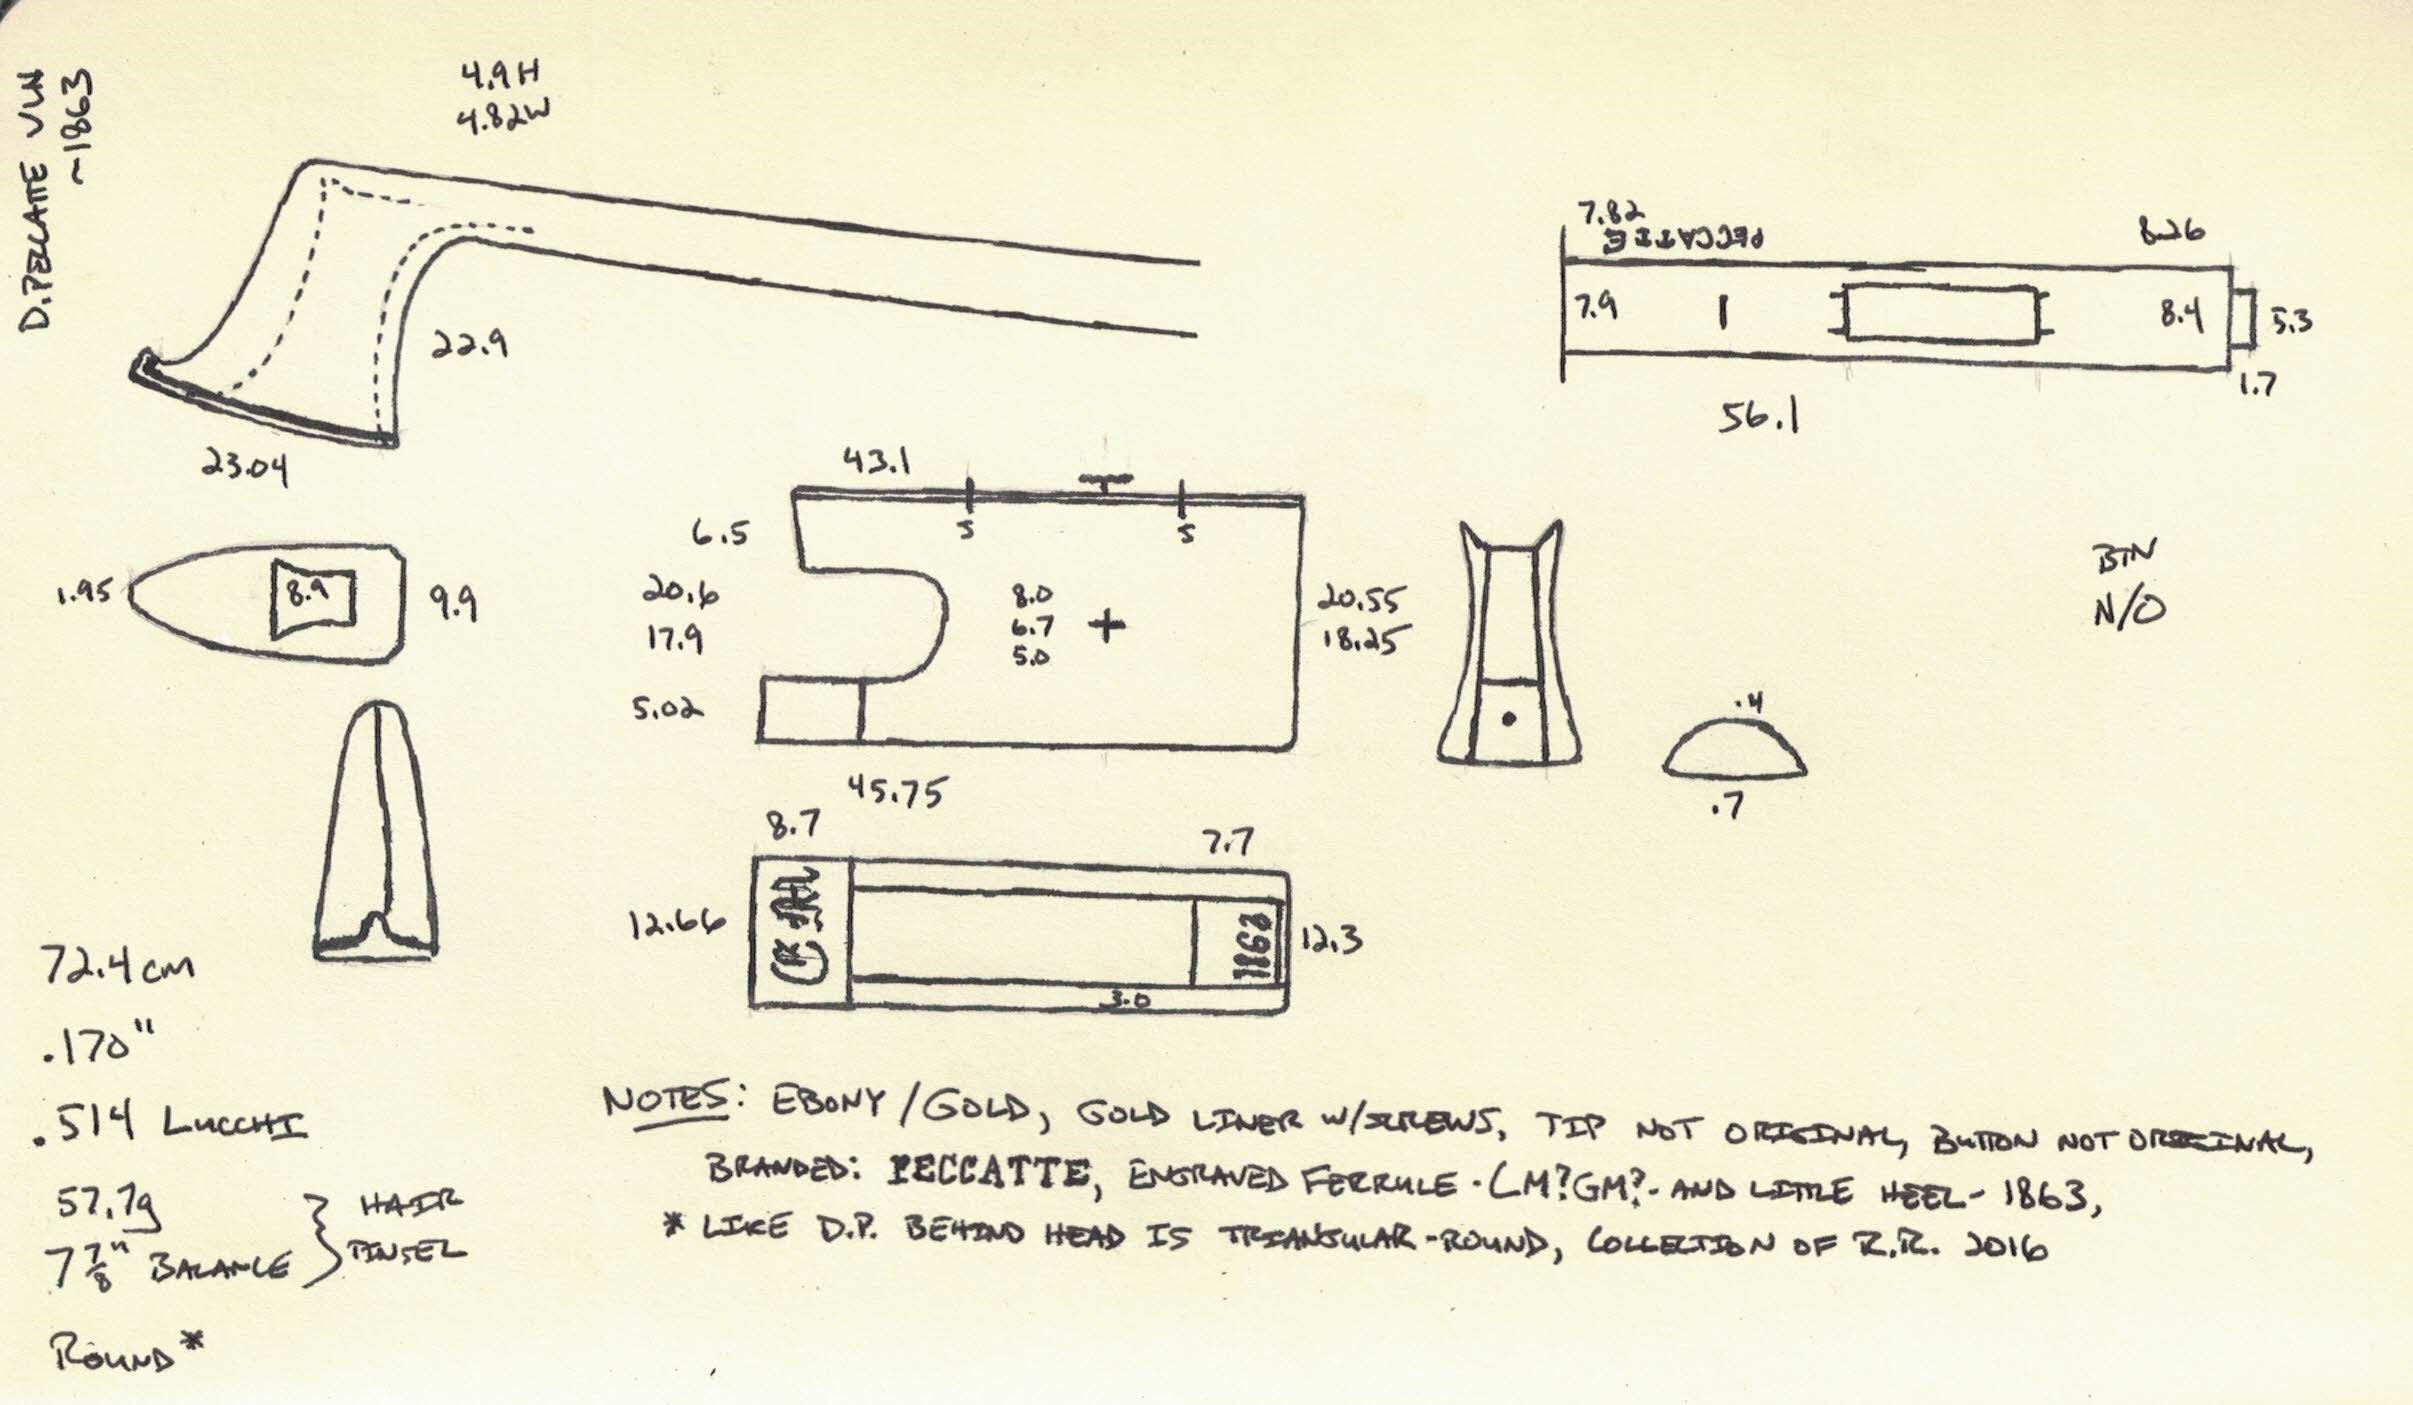 D. PECCATTE VLN
~1863
4.9H
4.82W
22.9
23.04
7.82
PECCATTE
8.26
7.9
8.4
5.3
1.7
56.1
43.1
6.5
5
5
20.6
17.9
8.0
6.7
5.0
20.55
18.25
5.02
45.75
1.95
8.9
9.9
BTN
N/O
.4
.7
8.7
7.7
12.66
1863
12.3
3.0
72.4 cm
.170"
.514 LUCCHI
57.7g
7 7/8" BALANCE
HAIR
TINSEL
ROUND*
NOTES: EBONY/GOLD, GOLD LINER W/SCREWS, TIP NOT ORIGINAL, BUTTON NOT ORIGINAL,
BRANDED: PECCATTE, ENGRAVED FERRULE - LM?GM? - AND LITTLE HEEL - 1863,
* LIKE D.P. BEHIND HEAD IS TRIANGULAR-ROUND, COLLECTION OF R.R. 2016